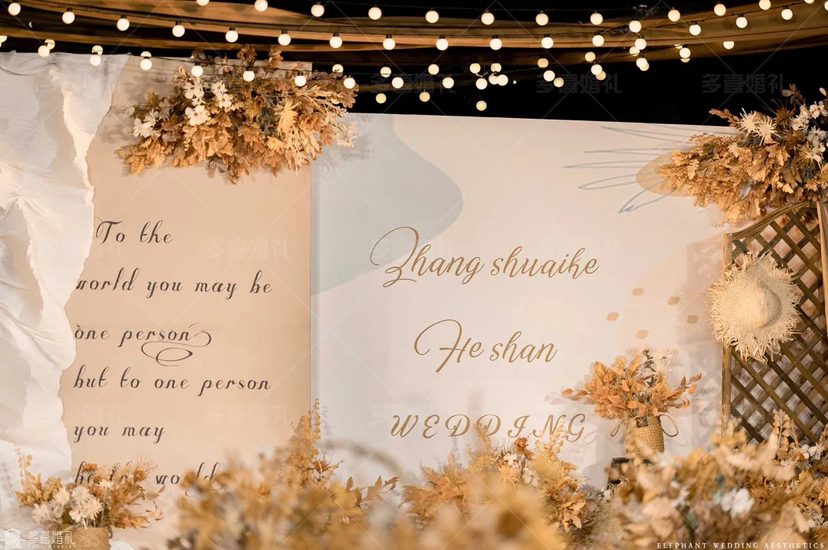 To the
world you may be
one person
but to one person
you may
be the world
Zhang shuaike
He shan
WEDDING
多喜婚礼
多喜婚礼
ELEPHANT WEDDING AESTHETICS